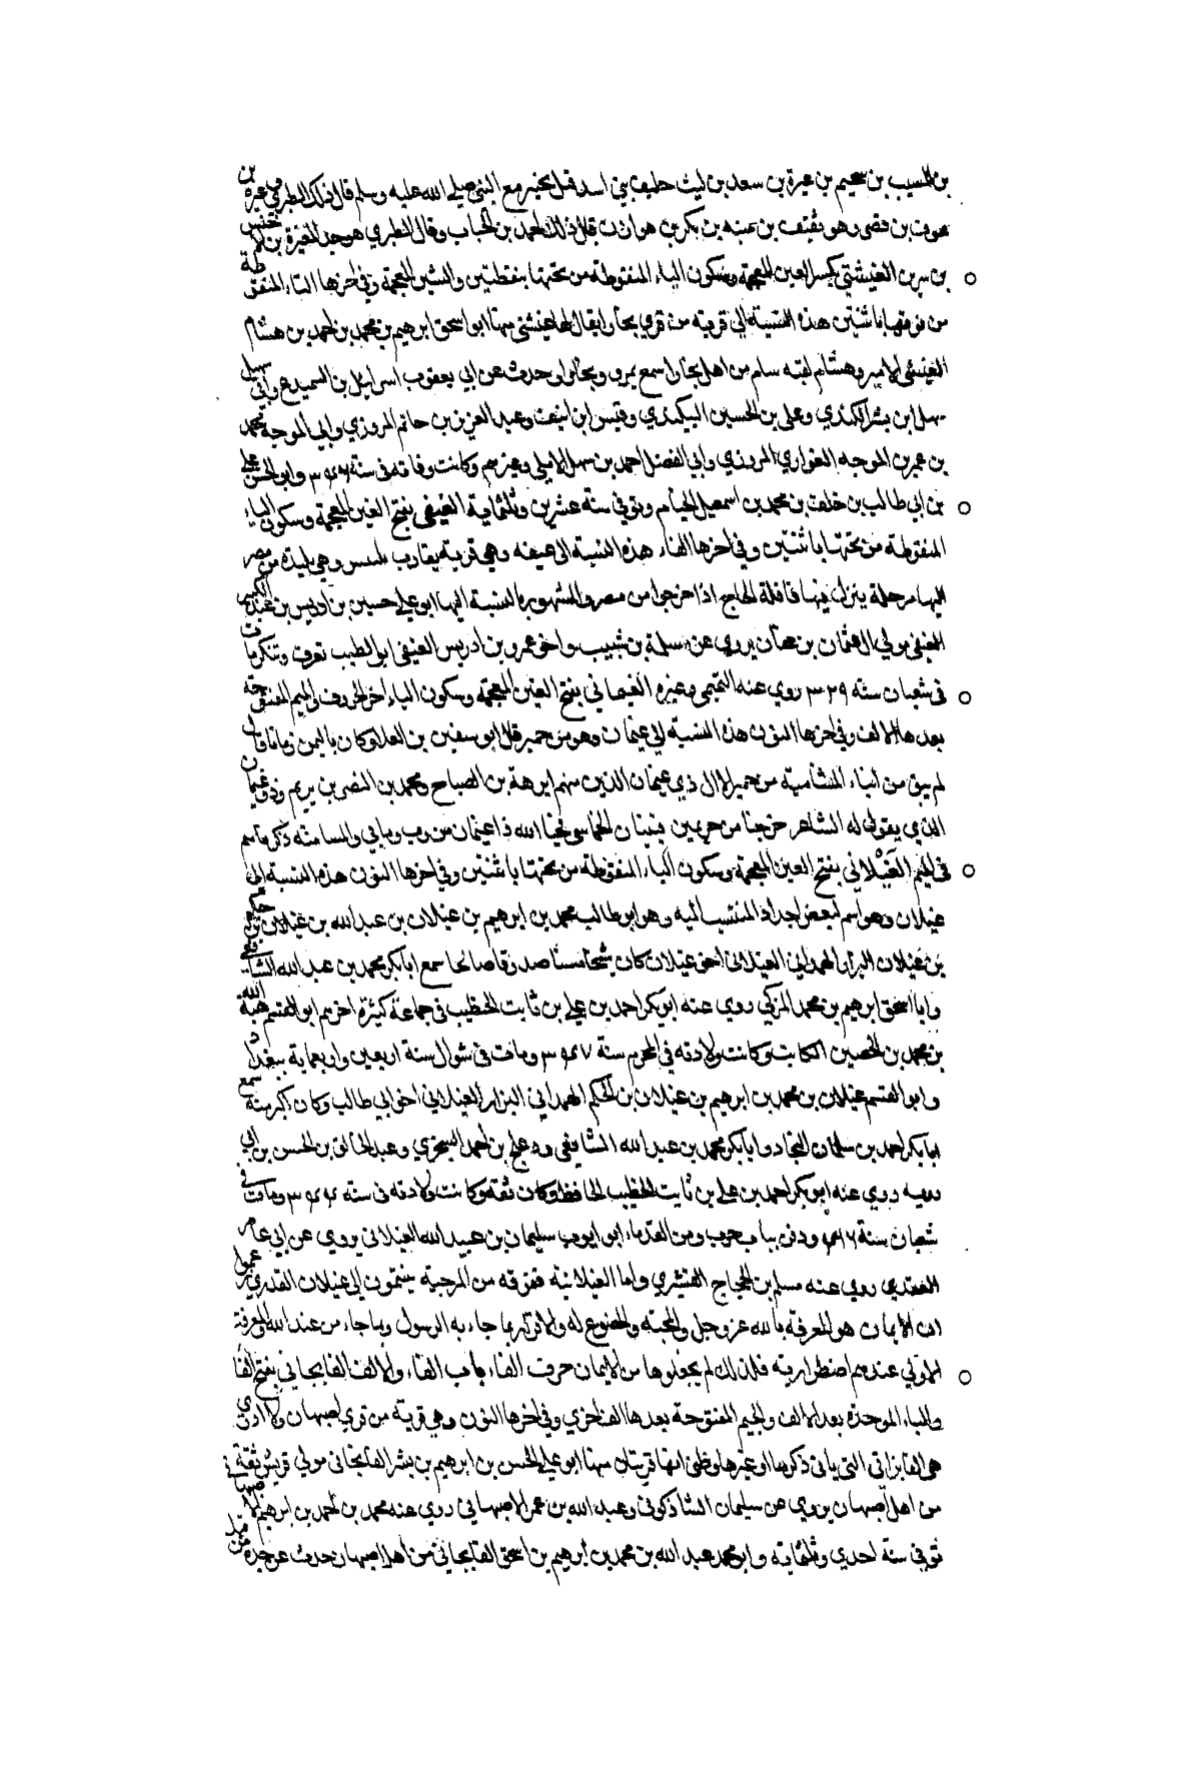 بن المسيب بن سحيم بن عبرة بن سعد بن ليث حليف بني اسد قتل بخيبر مع النبي صلى الله عليه وسلم قال ذلك الطبري في غيرة بن
عوف بن قصي وهو ثقيف بن منبه بن بكر بن هوازن قال ذلك احمد بن الحباب وقال الطبري هو جد المغيرة بن الاخنس
بن شريق الغيشتي بكسر الغين المعجمة وسكون الياء المنقوطة من تحتها بنقطتين والشين المعجمة وفي اخرها التاء المنقوطة
من فوقها باثنتين هذه النسبة الى قرية من قرى بخارا يقال لها غيشتى منها ابو اسحق ابرهيم بن محمد بن احمد بن هشام
الغيشتي الامير وهشام لقبه سام من اهل بخارا سمع بمرو وبخارا وحدث عن ابي يعقوب اسرائيل بن السميدع وابي سهيل
سهل ابن بشر الكندي وعلي بن الحسين البيكندي وقيس ابن انيف وعبد العزيز بن حاتم المروزي وابي الموجه محمد
بن عمرو بن الموجه الفزاري المروزي وابي الفضل احمد بن سهل الاملي وغيرهم وكانت وفاته في سنة ٣٤٦ وابو الحسن علي
بن ابي طالب بن خلف بن محمد بن اسمعيل الخيام وتوفي سنة عشرين وثلثماية الغيفي بفتح الغين المعجمة وسكون الياء
المنقوطة من تحتها باثنتين وفي اخرها الفاء هذه النسبة الى غيفه وهي قرية بقارب بلبيس وهي بليدة من مصر
اليها مرحلة ينزل فيها قافلة الحاج اذا خرجوا من مصر والمشهور بالنسبة اليها ابو علي حسين بن ادريس بن عبد الكبير
الغيفي مولي ال عثمان بن عفان يروي عن سلمة بن شبيب واخو عمرو بن ادريس الغيفي ابو الطيب تعرف وتنكر مات
في شعبان سنة ٣٢٩ روي عنه التميمي وغيره الغيماني بفتح الغين المعجمة وسكون الياء اخر الحروف والميم المفتوحة
بعدها الالف وفي اخرها النون هذه النسبة الى غيمان وهو من حمير قال ابو سفين بن العلا وكان باليمن زمانا قال
لم يبق من ابناء المشامنة من حمير الا ال ذي غيمان الذين منهم ابرهة بن الصباح ومحمد بن النضر بن يريم وذو غيمان
الذي يقول له الشاعر خرجنا من حريمين
في الميم الغَيْلاني بفتح الغين المعجمة وسكون الياء المنقوطة من تحتها باثنتين وفي اخرها النون هذه النسبة الى
غيلان وهو اسم لبعض اجداد المنتسب اليه وهو ابو طالب محمد بن محمد بن ابرهيم بن غيلان بن عبد الله بن غيلان بن حكيم
بن غيلان البزاز الهمداني الغيلاني اخو غيلان كان شيخا مسنا صدوقا صالحا سمع ابا بكر محمد بن عبد الله الشافعي
وابا اسحق ابرهيم بن محمد المزكي روي عنه ابو بكر احمد بن علي بن ثابت الخطيب في جماعة كثيرة اخرهم ابو القسم هبة الله
بن محمد بن الحصين الكاتب وكانت ولادته في المحرم سنة ٣٤٧ ومات في شوال سنة اربعين واربعماية ببغداد
وابو القسم غيلان بن محمد بن ابرهيم بن غيلان بن الحكم الهمداني البزاز الغيلاني اخو ابي طالب وكان اكبر منه سمع
ابا بكر احمد بن سلمان النجاد وابا بكر محمد بن عبد الله الشافعي ودعلج بن احمد السجزي وعبد الخالق بن الحسن بن ابي
روبه روي عنه ابو بكر احمد بن علي بن ثابت الخطيب الحافظ وكان ثقة وكانت ولادته في سنة ومات في
شعبان سنة ودفن بباب حرب ومن القدماء ابو ايوب سليمان بن عبيد الله الغيلاني يروي عن ابي عامر
العقدي روي عنه مسلم بن الحجاج القشيري واما الغيلانية ففرقة من المرجية ينتمون الى غيلان القدري زعموا
ان الايمان هو المعرفة بالله عز وجل والمحبة والخضوع له والاقرار بما جاء به الرسول وما جاء من عند الله والمعرفة
الاولي عندهم اضطرارية فلذلك لم يجعلوها من الايمان حرف الفاء باب الفاء والالف الفابجاني بفتح الفا
والباء الموحدة بعد الالف والجيم المفتوحة بعدها الف اخري وفي اخرها النون وهي قرية من قري اصبهان ولا ادري
هي الفابزاني التي ياتي ذكرها او غيرها وظني انها قريتان منها ابو علي الحسن بن ابرهيم بن بشر الفابجاني مولي قريش ثقة
من اهل اصبهان يروي عن سليمان الشاذكوني وعبد الله بن عمر الاصبهاني روي عنه محمد بن احمد بن ابرهيم الاصبهاني
توفي سنة احدي وثلثماية وابو محمد عبد الله بن محمد بن ابرهيم بن اسحق الفابجاني من اهل اصبهان حدث عن جده من قبل